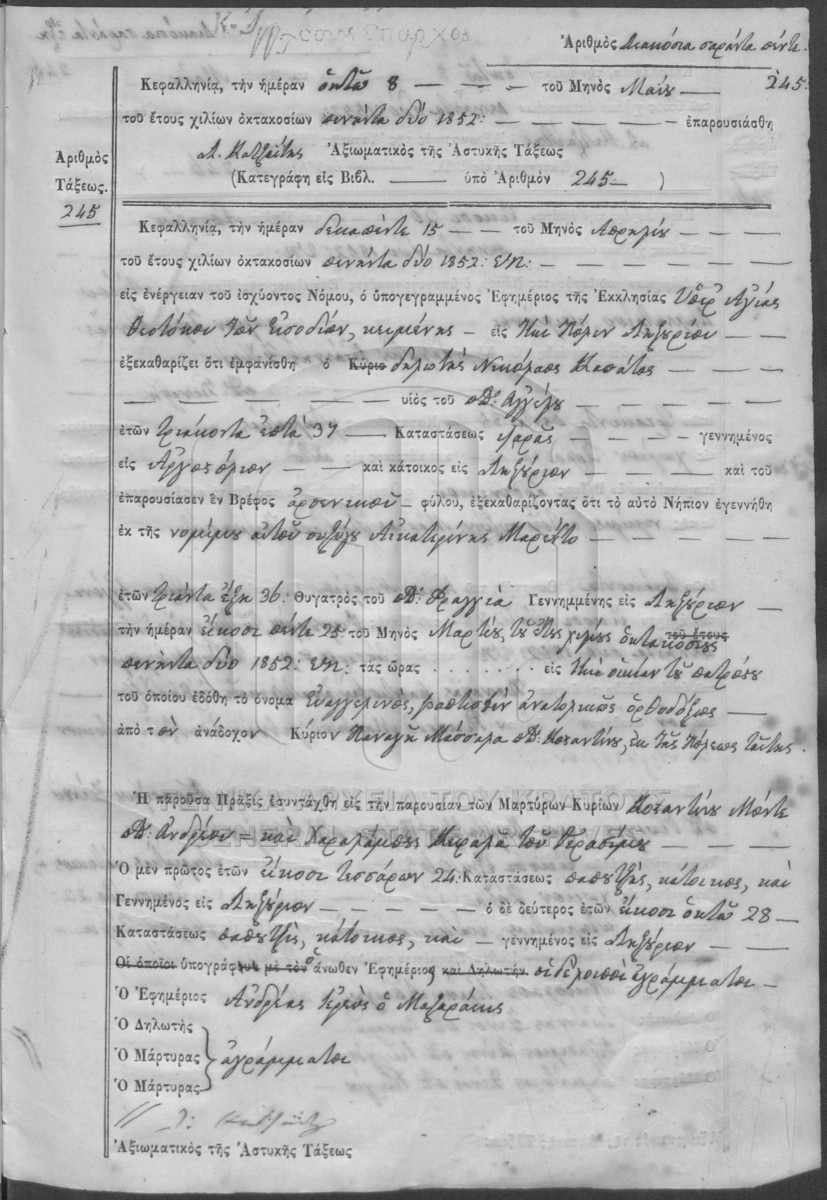 Ἀριθμὸς Διακόσια σαράντα πέντε
245
Κεφαλληνία, τὴν ἡμέραν ὀκτὼ 8 τοῦ Μηνὸς Μαΐου
τοῦ ἔτους χιλίων ὀκτακοσίων πενήντα δύο 1852: ἐπαρουσιάσθη
Ἀξιωματικὸς τῆς Ἀστυκῆς Τάξεως
(Κατεγράφη εἰς Βιβλ. ὑπὸ Ἀριθμὸν 245 )
Ἀριθμὸς
Τάξεως.
245
Κεφαλληνία, τὴν ἡμέραν δεκαπέντε 15 τοῦ Μηνὸς Απριλίου
τοῦ ἔτους χιλίων ὀκτακοσίων πενήντα δύο 1852: ΕΠ:
εἰς ἐνέργειαν τοῦ ἰσχύοντος Νόμου, ὁ ὑπογεγραμμένος Ἐφημέριος τῆς Ἐκκλησίας Ὑπερ Αγίας
Θεοτόκου τῶν Εἰσοδίων, κειμένης εἰς τὴν Πόλιν Ληξουρίου
ἐξεκαθαρίζει ὅτι ἐμφανίσθη ὁ Κύριο δηλωτὴς Νικόλαος
υἱὸς τοῦ πδ: Αγγέλου
ἐτῶν τριάκοντα ἑπτὰ 37 Καταστάσεως γεννημένος
εἰς Αργοστόλιον καὶ κάτοικος εἰς Ληξούριον καὶ τοῦ
ἐπαρουσίασεν ἓν Βρέφος ἀρσενικοῦ φύλου, ἐξεκαθαρίζοντας ὅτι τὸ αὐτὸ Νήπιον ἐγεννήθη
ἐκ τῆς νομίμου αὐτοῦ συζύγου Αἰκατερίνης
ἐτῶν τριάντα ἕξη 36: Θυγατρὸς τοῦ πδ: Φραγγιά Γεννημμένης εἰς Ληξούριον
τὴν ἡμέραν εἴκοσι πέντε 25: τοῦ Μηνὸς Μαρτίου, τοῦ ἔτους χιλίους ὀκτακοσίους τοῦ ἔτους
πενήντα δύο 1852: ΕΠ: τὰς ὥρας . . . . . . . εἰς τὴν οἰκίαν τοῦ πατρός του
τοῦ ὁποίου ἐδόθη τὸ ὄνομα Εὐαγγελινὸς, βαπτισθὲν ἀνατολικῶς ὀρθοδόξως
ἀπὸ τὸν ἀνάδοχον Κύριον Παναγῆ πδ: Κοσταντίνου, ἐκ τῆς Πόλεως ταύτης
Ἡ παροῦσα Πρᾶξις ἐσυντάχθη εἰς τὴν παρουσίαν τῶν Μαρτύρων Κυρίων Κοσταντίνου
πδ: Ἀνδρέου καὶ Χαραλάμπους Κεφαλᾶ τοῦ Γερασίμου
Ὁ μὲν πρῶτος ἐτῶν εἴκοσι τεσσάρων 24: Καταστάσεως παπουτζῆς, κάτοικος, καὶ
Γεννημένος εἰς Ληξούριον ὁ δὲ δεύτερος ἐτῶν εἴκοσι ὀκτὼ 28
Καταστάσεως παπουτζὶς, κάτοικος, καὶ γεννημένος εἰς Ληξούριον
Οἱ ὁποῖοι ὑπογράφουν μὲ τὸν ἄνωθεν Ἐφημέριος καὶ Δηλωτὴν οἱ δὲ λοιποὶ ἀγράμματοι
Ὁ Ἐφημέριος Ἀνδρέας ἱερεὺς ὁ Μαζαράκης
Ὁ Δηλωτὴς
Ὁ Μάρτυρας ἀγράμματοι
Ὁ Μάρτυρας
Ἀξιωματικὸς τῆς Ἀστυκῆς Τάξεως
ΓΕΝΙΚΑ ΑΡΧΕΙΑ ΤΟΥ ΚΡΑΤΟΥΣ
GENERAL STATE ARCHIVES